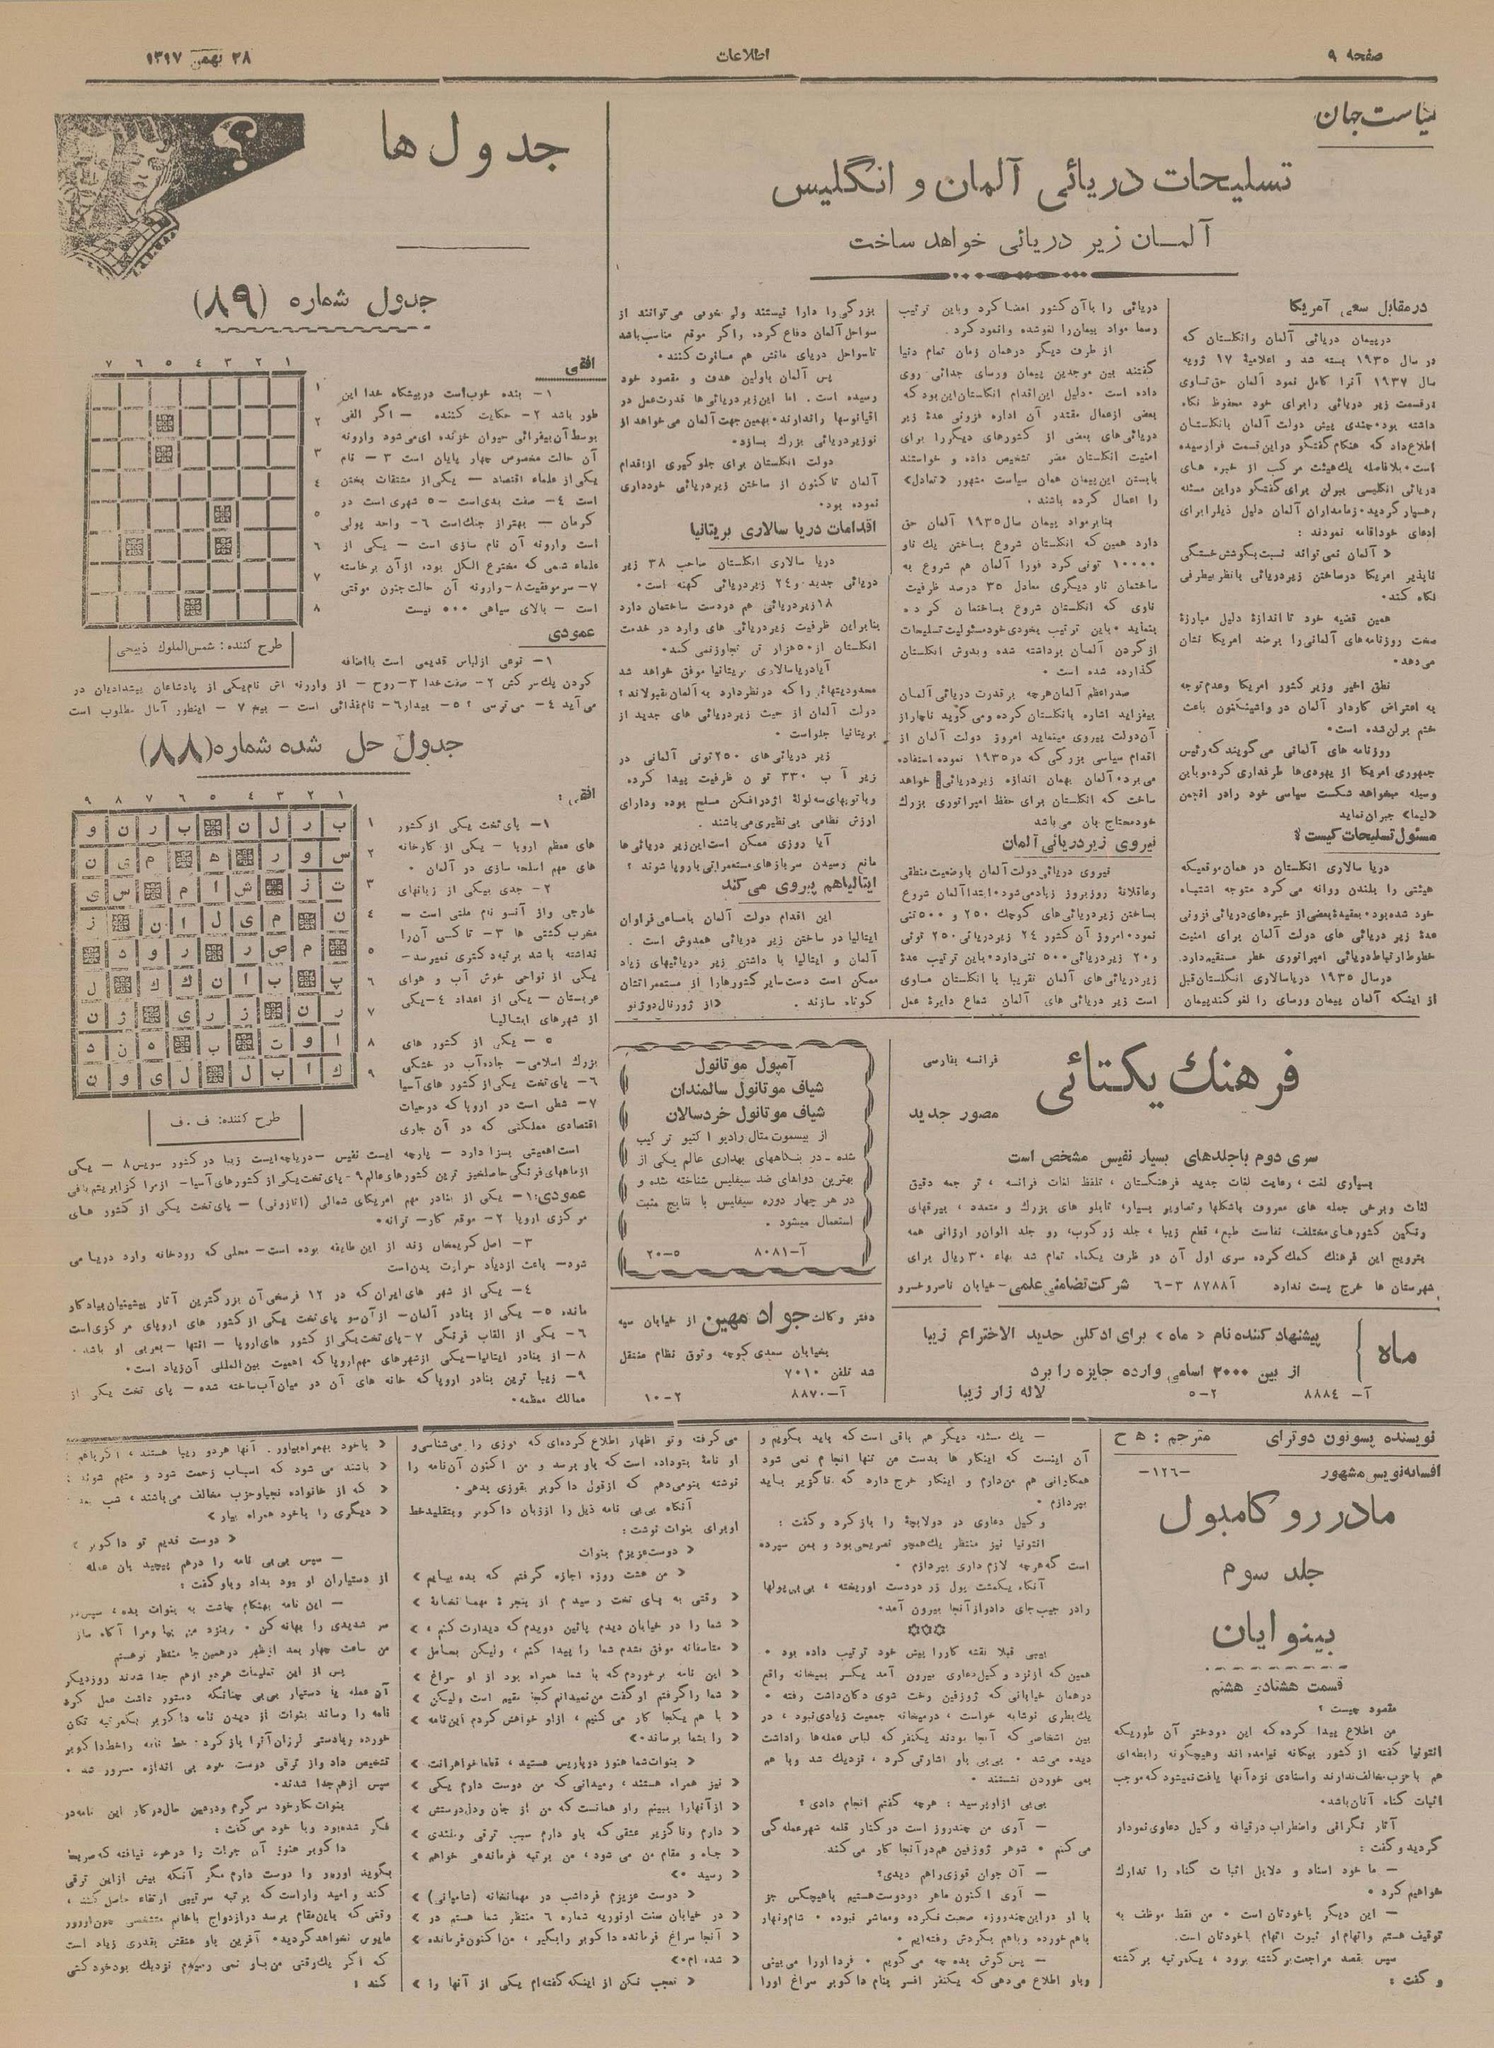 صفحه ۹
اطلاعات
۲۸ بهمن ۱۳۱۷
سیاست جهان
تسلیحات دریائی آلمان و انگلیس
آلمان زیر دریائی خواهد ساخت
در مقابل سعی آمریکا
در پیمان دریائی آلمان وانگلستان که
در سال ۱۹۳۵ بسته شد و اعلامیهٔ ۱۷ ژویه
سال ۱۹۳۷ آنرا کامل نمود آلمان حق تساوی
در قسمت زیر دریائی را برای خود محفوظ نگاه
داشته بود. چندی پیش دولت آلمان بانگلستان
اطلاع داد که هنگام گفتگو در این قسمت فرارسیده
است. بلافاصله یک هیئت مرکب از خبره های
دریائی انگلیسی ببرلن برای گفتگو در این مسئله
رهسپار گردید. زمامداران آلمان دلیل ذیل را برای
ادعای خود اقامه نمودند:
« آلمان نمی تواند نسبت بکوشش خستگی
ناپذیر امریکا در ساختن زیر دریائی با نظر بیطرفی
نگاه کند.
همین قضیه خود تا اندازهٔ دلیل مبارزهٔ
سخت روزنامه های آلمانی را بر ضد امریکا نشان
می دهد.
نطق اخیر وزیر کشور امریکا وعدم توجه
به اعتراض کاردار آلمان در واشینگتون باعث
خشم برلن شده است.
روزنامه های آلمانی می گویند که رئیس
جمهوری امریکا از یهودی ها طرفداری کرده و باین
وسیله میخواهد شکست سیاسی خود را در انجمن
«لیما» جبران نماید
مسئول تسلیحات کیست؟
دریا سالاری انگلستان در همان موقعیکه
هیئتی را بلندن روانه می کرد متوجه اشتباه
خود شده بود. بعقیدهٔ بعضی از خبره های دریائی فزونی
عدهٔ زیر دریائی های دولت آلمان برای امنیت
خطوط ارتباط دریائی امپراتوری خطر مستقیم دارد.
در سال ۱۹۳۵ دریاسالاری انگلستان قبل
از اینکه آلمان پیمان ورسای را لغو کند پیمان
دریائی را با آن کشور امضا کرد و باین ترتیب
رسما مواد پیمان را لغو شده وانمود کرد.
از طرف دیگر در همان زمان تمام دنیا
گفتند بین موجدین پیمان ورسای جدائی روی
داده است. دلیل این اقدام انگلستان این بود که
بعضی از عمال مقتدر آن اداره فزونی عدهٔ زیر
دریائی های بعضی از کشورهای دیگر را برای
امنیت انگلستان مضر تشخیص داده و خواستند
بابستن این پیمان همان سیاست مشهور «تعادل»
را اعمال کرده باشند.
بنابر مواد پیمان سال ۱۹۳۵ آلمان حق
دارد همین که انگلستان شروع بساختن یک ناو
۱۰۰۰۰ تونی کرد فورا آلمان هم شروع به
ساختمان ناو دیگری معادل ۳۵ درصد ظرفیت
ناوی که انگلستان شروع بساختمان کرده
بنماید. باین ترتیب بخودی خود مسئولیت تسلیحات
از گردن آلمان برداشته شده وبدوش انگلستان
گذارده شده است.
صدر اعظم آلمان هر چه بر قدرت دریائی آلمان
بیفزاید اشاره بانگلستان کرده و می گوید ناچار از
آن دولت پیروی مینماید امروز دولت آلمان از
اقدام سیاسی بزرگی که در ۱۹۳۵ نموده استفاده
می برد. آلمان بهمان اندازه زیر دریائی خواهد
ساخت که انگلستان برای حفظ امپراتوری بزرگ
خود محتاج بان می باشد
نیروی زیر دریائی آلمان
نیروی دریائی دولت آلمان باوضعیت منطقی
وعاقلانهٔ روز بروز زیاد می شود. ابتدا آلمان شروع
بساختن زیر دریائی های کوچک ۲۵۰ و ۵۰۰ تنی
نمود. امروز آن کشور ۲۴ زیر دریائی ۲۵۰ تونی
و ۲۰ زیر دریائی ۵۰۰ تنی دارد. باین ترتیب عدهٔ
زیر دریائی های آلمان تقریبا با انگلستان مساوی
است زیر دریائی های آلمان شعاع دایرهٔ عمل
بزرگی را دارا نیستند ولی خوبی می توانند از
سواحل آلمان دفاع کرده و اگر موقع مناسب باشد
تا سواحل دریای مانش هم مسافرت کنند.
پس آلمان باولین هدف و مقصود خود
رسیده است. اما این زیر دریائی ها قدرت عمل در
اقیانوسها را ندارند. بهمین جهت آلمان می خواهد از
نو زیر دریائی بزرگ بسازد.
دولت انگلستان برای جلو گیری از اقدام
آلمان تا کنون از ساختن زیر دریائی خودداری
نموده بود.
اقدامات دریا سالاری بریتانیا
دریا سالاری انگلستان صاحب ۳۸ زیر
دریائی جدید و ۲۴ زیر دریائی کهنه است.
۱۸ زیر دریائی هم در دست ساختمان دارد
بنابر این ظرفیت زیر دریائی های وارد در خدمت
انگلستان از ۵۰ هزار تن تجاوز نمی کند.
آیا دریا سالاری بریتانیا موفق خواهد شد
محدودیتهائی را که در نظر دارد به آلمان بقبولاند؟
دولت آلمان از حیث زیر دریائی های جدید از
بریتانیا جلو است.
زیر دریائی های ۲۵۰ تونی آلمانی در
زیر آب ۳۳۰ تون ظرفیت پیدا کرده
و با توپهای سه لولهٔ اژدر افکن مسلح بوده و دارای
ارزش نظامی بی نظیری می باشند.
آیا روزی ممکن است این زیر دریائی ها
مانع رسیدن سرباز های مستعمراتی باروپا شوند؟
ایتالیا هم پیروی می کند
این اقدام دولت آلمان با مساعی فراوان
ایتالیا در ساختن زیر دریائی همدوش است.
آلمان و ایتالیا با داشتن زیر دریائیهای زیاد
ممکن است دست سایر کشورها را از مستعمراتشان
کوتاه سازند. «از ژورنال دوژنو
جدول ها
جدول شماره (۸۹)
افقی
۱- بنده خوب است در پیشگاه خدا این
طور باشد ۲- حکایت کننده - اگر الفی
بوسط آن بیفزائی حیوان خزنده ای می شود وارونه
آن حالت مخصوص چهار پایان است ۳- نام
یکی از علماء اقتصاد - یکی از مشتقات پختن
است ۴- صفت بدی است - ۵ شهری است در
کرمان - بهتر از جنگ است ۶- واحد پولی
است وارونه آن نام سازی است - یکی از
علماء شمی که مخترع الکل بوده از آن برخاسته
۷- سر موفقیت ۸- وارونه آن حالت جنون موقتی
است - بالای سیاهی ۵۰۰ نیست
عمودی
۱- نوعی از لباس قدیمی است با اضافه
کردن یک سرکش ۲- صفت خدا ۳- روح - از وارونه اش نام یکی از پادشاهان پیشدادیان در
می آید ۴- می ترسی؟ ۵- بیدار ۶- نام غذائی است - بیم ۷- اینطور آمال مطلوب است
طرح کننده: شمس الملوک ذبیحی
جدول حل شده شماره (۸۸)
افقی:
۱- پای تخت یکی از کشور
های معظم اروپا - یکی از کارخانه
های مهم اسلحه سازی در آلمان.
۲- جدی بیکی از زبانهای
خارجی و از آنسو نام ملتی است -
مخرب کشتی ها ۳- تا کسی آن را
نداشته باشد برتبه دکتری نمیرسد-
یکی از نواحی خوش آب و هوای
عربستان - یکی از اعداد ۴- یکی
از شهر های ایتالیا
۵- یکی از کشور های
بزرگ اسلامی - جاده آب در خشکی
۶- پای تخت یکی از کشور های آسیا
۷- شطی است در اروپا که در حیات
اقتصادی مملکتی که در آن جاری
است اهمیتی بسزا دارد - پارچه ایست نفیس - دریاچه ایست زیبا در کشور سویس ۸- یکی
از ماههای فرنگی حاصلخیز ترین کشورهای عالم ۹- پای تخت یکی از کشور های آسیا - از مراکز ابریشم بافی
عمودی: ۱- یکی از بنادر مهم امریکای شمالی (اتازونی) - پای تخت یکی از کشور های
مرکزی اروپا ۲- موقع کار - ترانه.
۳- اصل کریمخان زند از این طایفه بوده است - محلی که رودخانه وارد دریا می
شود- باعث ازدیاد حرارت بدن است
۴- یکی از شهر های ایران که در ۱۲ فرسخی آن بزرگترین آثار پیشینیان بیادگار
مانده ۵- یکی از بنادر آلمان- از آنسو پای تخت یکی از کشور های اروپای مرکزی است
۶- یکی از القاب فرنگی ۷- پای تخت یکی از کشور های اروپا - انتها - بعربی او باشد.
۸- از بنادر ایتالیا- یکی از شهرهای مهم اروپا که اهمیت بین المللی آن زیاد است.
۹- زیبا ترین بنادر اروپا که خانه های آن در میان آب ساخته شده - پای تخت یکی از
ممالک معظمه.
طرح کننده: ف . ف
فرهنک یکتائی
فرانسه بفارسی
مصور جدید
سری دوم با جلد های بسیار نفیس مشخص است
بسیاری لغت، رعایت لغات جدید فرهنگستان، تلفظ لغات فرانسه، ترجمه دقیق
لغات وبرخی جمله های معروف باشکلها وتصاویر بسیار، تابلو های بزرگ و متعدد، بیرقهای
رنگین کشور های مختلف، نفاست طبع، قطع زیبا، جلد زرکوب، رو جلد الوان و ارزانی همه
بترویج این فرهنگ کمک کرده سری اول آن در ظرف یکماه تمام شد بهاء ۳۰ ریال برای
شهرستان ها خرج پست ندارد آ-۸۷۸۸ ۳-۶ شرکت تضامنی علمی - خیابان ناصر خسرو
ماه
پیشنهاد کننده نام «ماه» برای ادکلن جدید الاختراع زیبا
از بین ۳۰۰۰ اسامی وارده جایزه را برد
آ- ۸۸۸۴ ۲-۵ لاله زار زیبا
آمپول موتانول
شیاف موتانول سالمندان
شیاف موتانول خردسالان
از بیسموت متال رادیو اکتیو ترکیب
شده - در بنگاههای بهداری عالم یکی از
بهترین دواهای ضد سیفلیس شناخته شده و
در هر چهار دوره سیفلیس با نتایج مثبت
استعمال میشود.
آ-۸۰۸۱ ۵-۲۰
دفتر وکالت جواد مهین از خیابان سپه
بخیابان سعدی کوچه وثوق نظام منتقل
شد تلفن ۷۰۱۰
آ-۸۸۷۰ ۲-۱۰
نویسنده پسونون دوترای مترجم: ه ح
افسانه نویس مشهور -۱۲۶-
مادر روکامبول
جلد سوم
بینوایان
قسمت هشتاد و هشتم
مقصود چیست؟
من اطلاع پیدا کرده که این دو دختر آن طوریکه
انتونیا گفته از کشور بیگانه نیامده اند وهیچگونه رابطه ای
هم با حزب مخالف ندارند و اسنادی نزد آنها یافت نمیشود که موجب
اثبات گناه آنان باشد.
آثار نگرانی واضطراب در قیافه وکیل دعاوی نمودار
گردید و گفت:
- ما خود اسناد و دلایل اثبات گناه را تدارک
خواهیم کرد.
- این دیگر با خودتان است. من فقط موظف به
توقیف هستم و اتهام او ثبوت اتهام با خودتان است.
سپس بقصد مراجعت بر گشته برود، یکمرتبه بر گشته
و گفت:
- یک مسئله دیگر هم باقی است که باید بگویم و
آن اینست که اینکار ها بدست من تنها انجام نمی شود
همکارانی هم من دارم و اینکار خرج دارد که ناگزیر باید
بپردازم.
وکیل دعاوی در دولابچهٔ را باز کرد و گفت:
انتونیا نیز منتظر یک همچو تصریحی بود و بمن سپرده
است که هر چه لازم داری بپردازم.
آنگاه یکمشت پول زر در دست او ریخته، بی بی پولها
را در جیب جای داد و از آنجا بیرون آمد.
بیبی قبلا نقشه کار را پیش خود ترتیب داده بود.
همین که از نزد وکیل دعاوی بیرون آمد یکسر بمیخانه واقع
در همان خیابانی که ژوزفین رخت شوی دکان داشت رفته.
یک بطری نوشابه خواست، در میخانه جمعیت زیادی نبود، در
بین اشخاصی که آنجا بودند یکنفر که لباس عمله ها را داشت
دیده می شد. بی بی باو اشارتی کرد، نزدیک شد وباهم
بمی خوردن نشستند.
بی بی از او پرسید: هر چه گفتم انجام دادی؟
- آری من چند روز است در کنار قلعه شهر عملگی
می کنم. شوهر ژوزفین هم در آنجا کار می کند.
- آن جوان قوزی را هم دیدی؟
- آری اکنون ماهر دو دوست هستیم باهیچکس جز
با او در این چند روزه صحبت نکرده و معاشر نبوده. شام و نهار
باهم خورده و باهم بگردش رفته ایم.
- پس گوش بده چه می گویم. فردا او را می بینی
وباو اطلاع می دهی که یکنفر افسر بنام داکوبر سراغ او را
می گرفته و تو اظهار اطلاع کرده ای که قوزی را می شناسی و
او نامهٔ بتو داده است که باو برسد و من اکنون آن نامه را
نوشته بتو می دهم که از قول داکوبر بقوزی بدهی.
آنگاه بی بی نامه ذیل را از زبان داکوبر وبتقلید خط
او برای بنوات نوشت:
« دوست عزیزم بنوات
« من هشت روزه اجازه گرفتم که بده بیایم »
« وقتی به پای تخت رسیدم از پنجرهٔ مهمانخانهٔ »
« شما را در خیابان دیدم پائین دویدم که دیدارت کنم، »
« متاسفانه موفق نشدم شما را پیدا کنم، ولیکن بحامل »
« این نامه برخوردم که با شما همراه بود از او سراغ »
« شما را گرفتم او گفت من نمیدانم کجا مقیم است ولیکن »
« با هم یکجا کار می کنیم، از او خواهش کردم این نامه »
« را بشما برساند.»
« بنوات شما هنوز در پاریس هستید، قطعا خواهرانت »
« نیز همراه هستند، و میدانی که من دوست دارم یکی »
« از آنها را ببینم را و همانست که من از جان ودل دوستش »
« دارم و ناگزیر عشقی که باو دارم سبب ترقی و بلندی »
« جاه و مقام من می شود، من برتبه فرماندهی خواهم »
« رسید.»
« دوست عزیزم فرداشب در مهمانخانه (شامپانی) »
« در خیابان سنت اونوریه شماره ۶ منتظر شما هستم در »
« آنجا سراغ فرمانده داکوبر را بگیر، من اکنون فرمانده »
« شده ام.»
« تعجب نکن از اینکه گفته ام یکی از آنها را »
« باخود بهمراه بیاور. آنها هر دو زیبا هستند، اگر باهم
« باشند می شود که اسباب زحمت شود و متهم شوند
« که از خانواده نجبا و حزب مخالف می باشند، شب بعد
« دیگری را با خود همراه بیار »
« دوست قدیم تو داکوبر »
- سپس بی بی نامه را درهم پیچید بان عمله
از دستیاران او بود بداد وباو گفت:
- این نامه بهنگام چاشت به بنوات بده، سپس
سر شدیدی را بهانه کن. و بنزد من بیا و مرا آگاه ساز
من ساعت چهار بعد از ظهر در همین جا منتظر تو هستم
پس از این تعلیمات هر دو از هم جدا شدند روز دیگر
آن عمله یا دستیار بی بی چنانکه دستور داشت عمل کرد
نامه را رساند بنوات از دیدن نامه داکوبر یکمرتبه تکان
خورده و با دستی لرزان آنرا باز کرد. خط نامه را خط داکوبر
تشخیص داد و از ترقی دوست خود بی اندازه مسرور شد.
سپس از هم جدا شدند.
بنوات کار خود سر گرم و در همین حال در کار این نامه در
فکر شده بود وبا خود می گفت:
داکوبر هنوز آن جرات را در خود نیافته که صریحا
بگوید اورور را دوست دارم مگر آنکه بیش از این ترقی
کند و امید وار است که برتبه سرتیپی ارتقاء حاصل کند،
وقتی که باین مقام برسد در ازدواج با خانم متشخصی چون اورور
مایوس نخواهد گردید. آفرین باو عشقش بقدری زیاد است
که اگر یک وقتی من باو نمی رسیدم نزدیک بود خود کشی
کند: